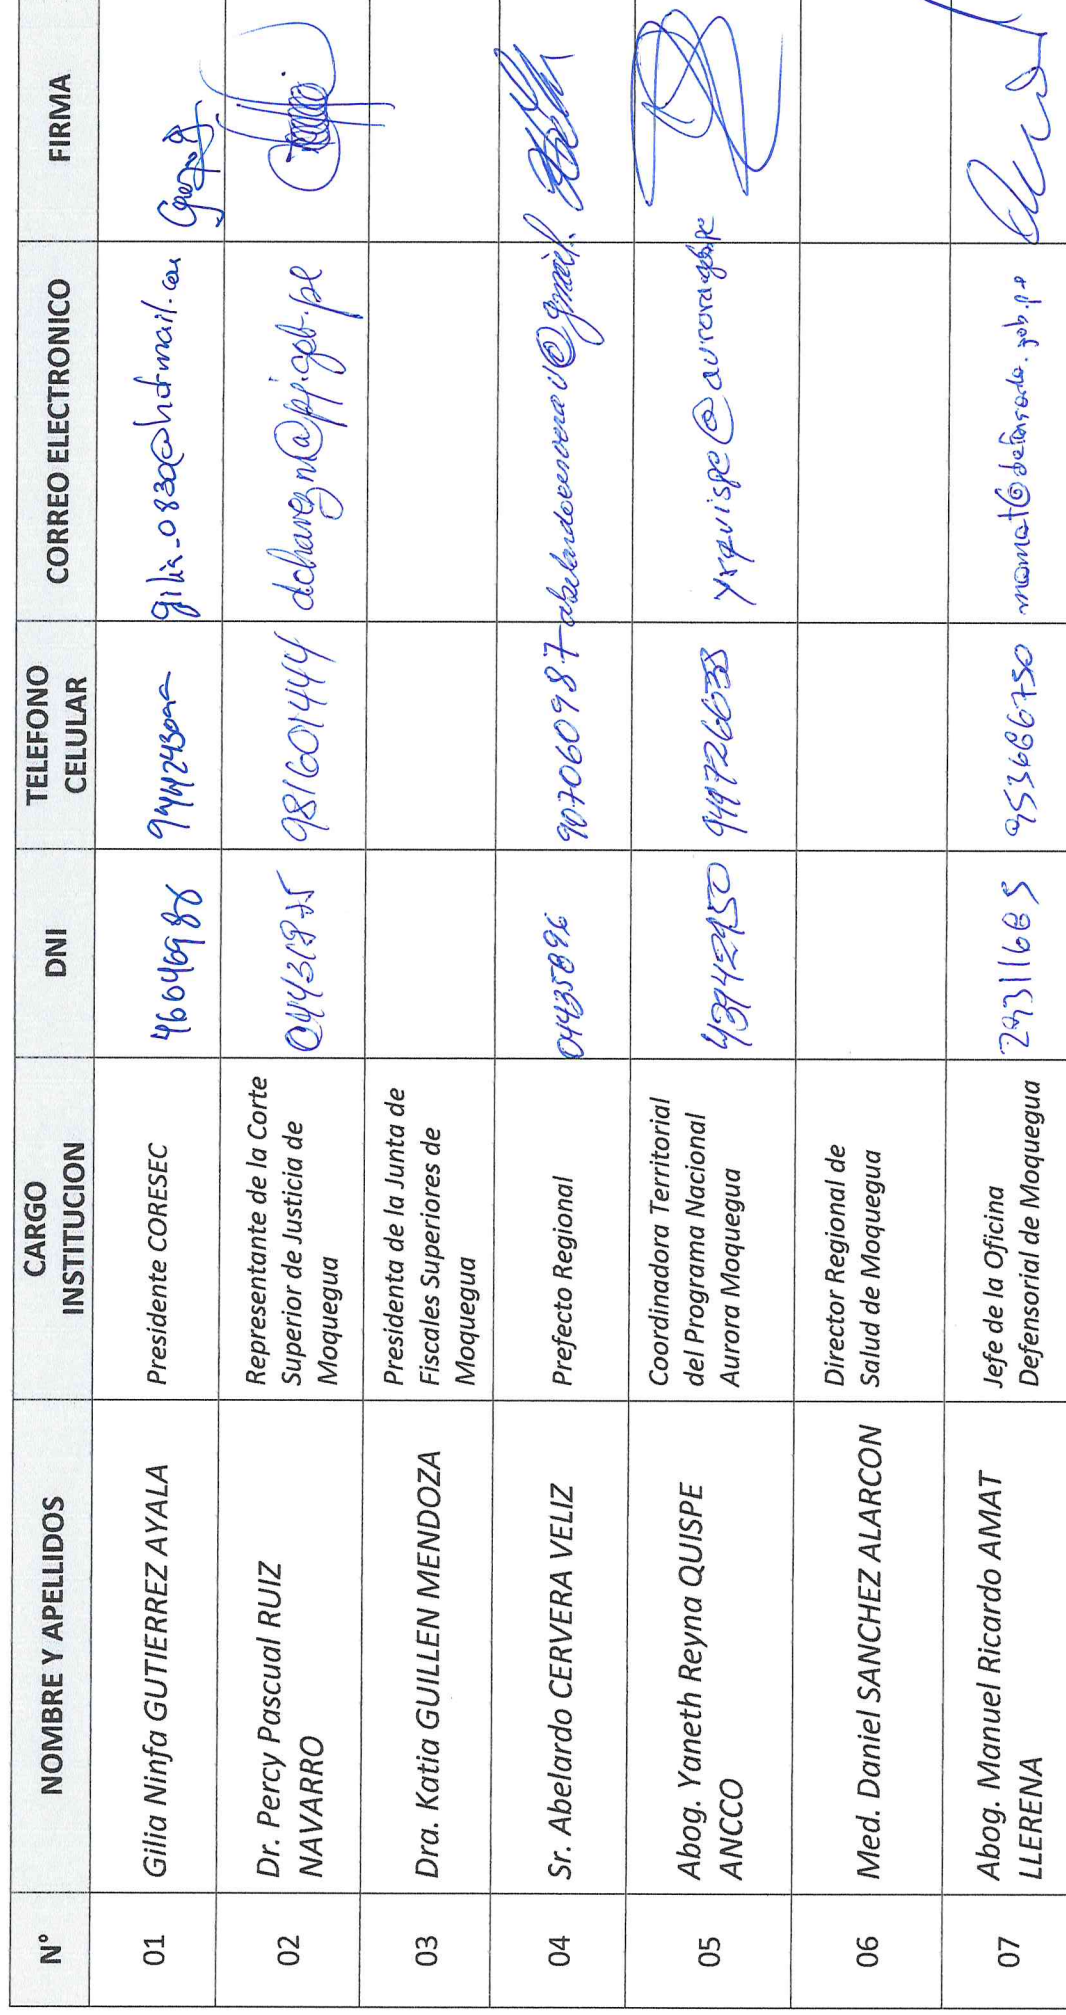 N° NOMBRE Y APELLIDOS CARGO INSTITUCION DNI TELEFONO CELULAR CORREO ELECTRONICO FIRMA
01 Gilia Ninfa GUTIERREZ AYALA Presidente CORESEC
02 Dr. Percy Pascual RUIZ NAVARRO Representante de la Corte Superior de Justicia de Moquegua 981601444 dchavezn@pj.gob.pe
03 Dra. Katia GUILLEN MENDOZA Presidenta de la Junta de Fiscales Superiores de Moquegua
04 Sr. Abelardo CERVERA VELIZ Prefecto Regional 04435896 907060987
05 Abog. Yaneth Reyna QUISPE ANCCO Coordinadora Territorial del Programa Nacional Aurora Moquegua yrquispe@aurora.gob.pe
06 Med. Daniel SANCHEZ ALARCON Director Regional de Salud de Moquegua
07 Abog. Manuel Ricardo AMAT LLERENA Jefe de la Oficina Defensorial de Moquegua 953686750